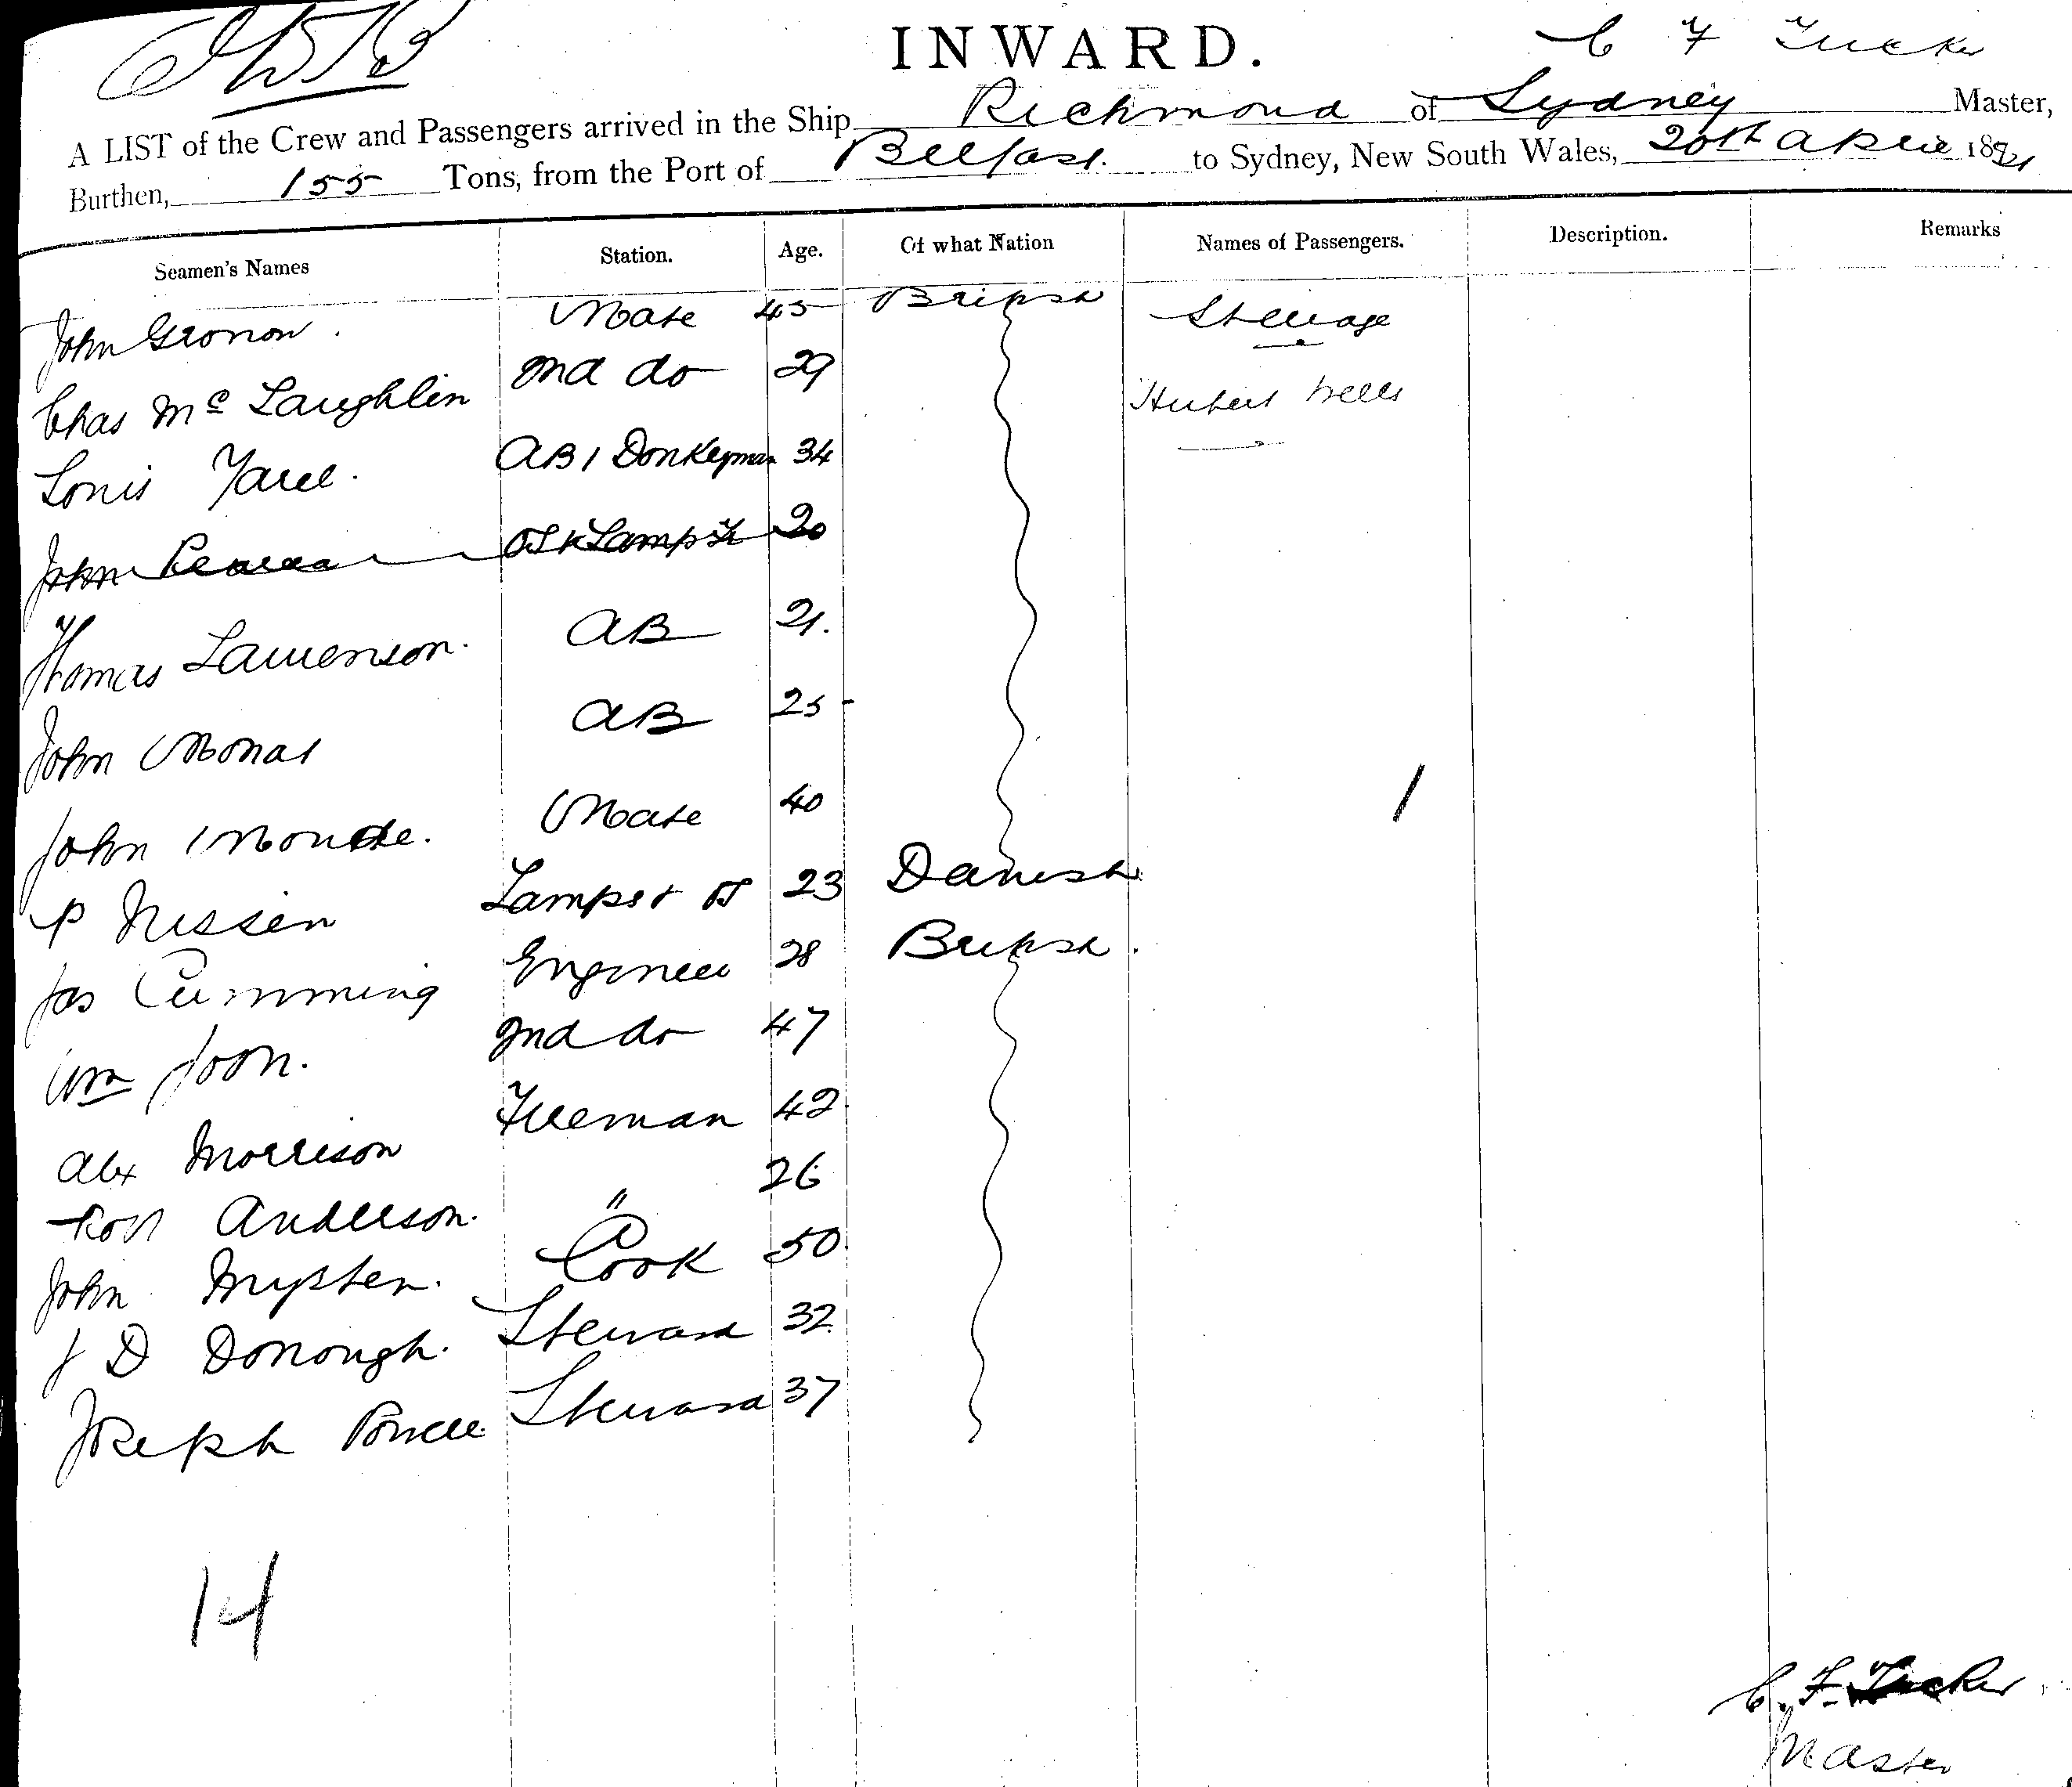 INWARD.
C F Tucker
A LIST of the Crew and Passengers arrived in the Ship Richmond of Sydney Master,
Burthen, 155 Tons, from the Port of Belfast. to Sydney, New South Wales, 20th April 1891
Seamen's Names Station. Age. Of what Nation Names of Passengers. Description. Remarks
John Gronow. Mate 45 British Steerage
Chas Mc Laughlin 2nd do 29 Hubert Wells
Louis AB / Donkeyman 34
John OS & Lamps 20
Thomas Laurenson. AB 21.
John Monat AB 25
John Mate 40
1
P Nissen Lamps & OS 23 Danish
Jas Cumming Engineer 28 British.
Wm Joon. 2nd do 47
Alex Morrison Fireman 42
Robt Anderson. " 26
John Cook 50
J D Donough. Steward 32
Joseph Powell Steward 37
14
C. F. Tucker
Master